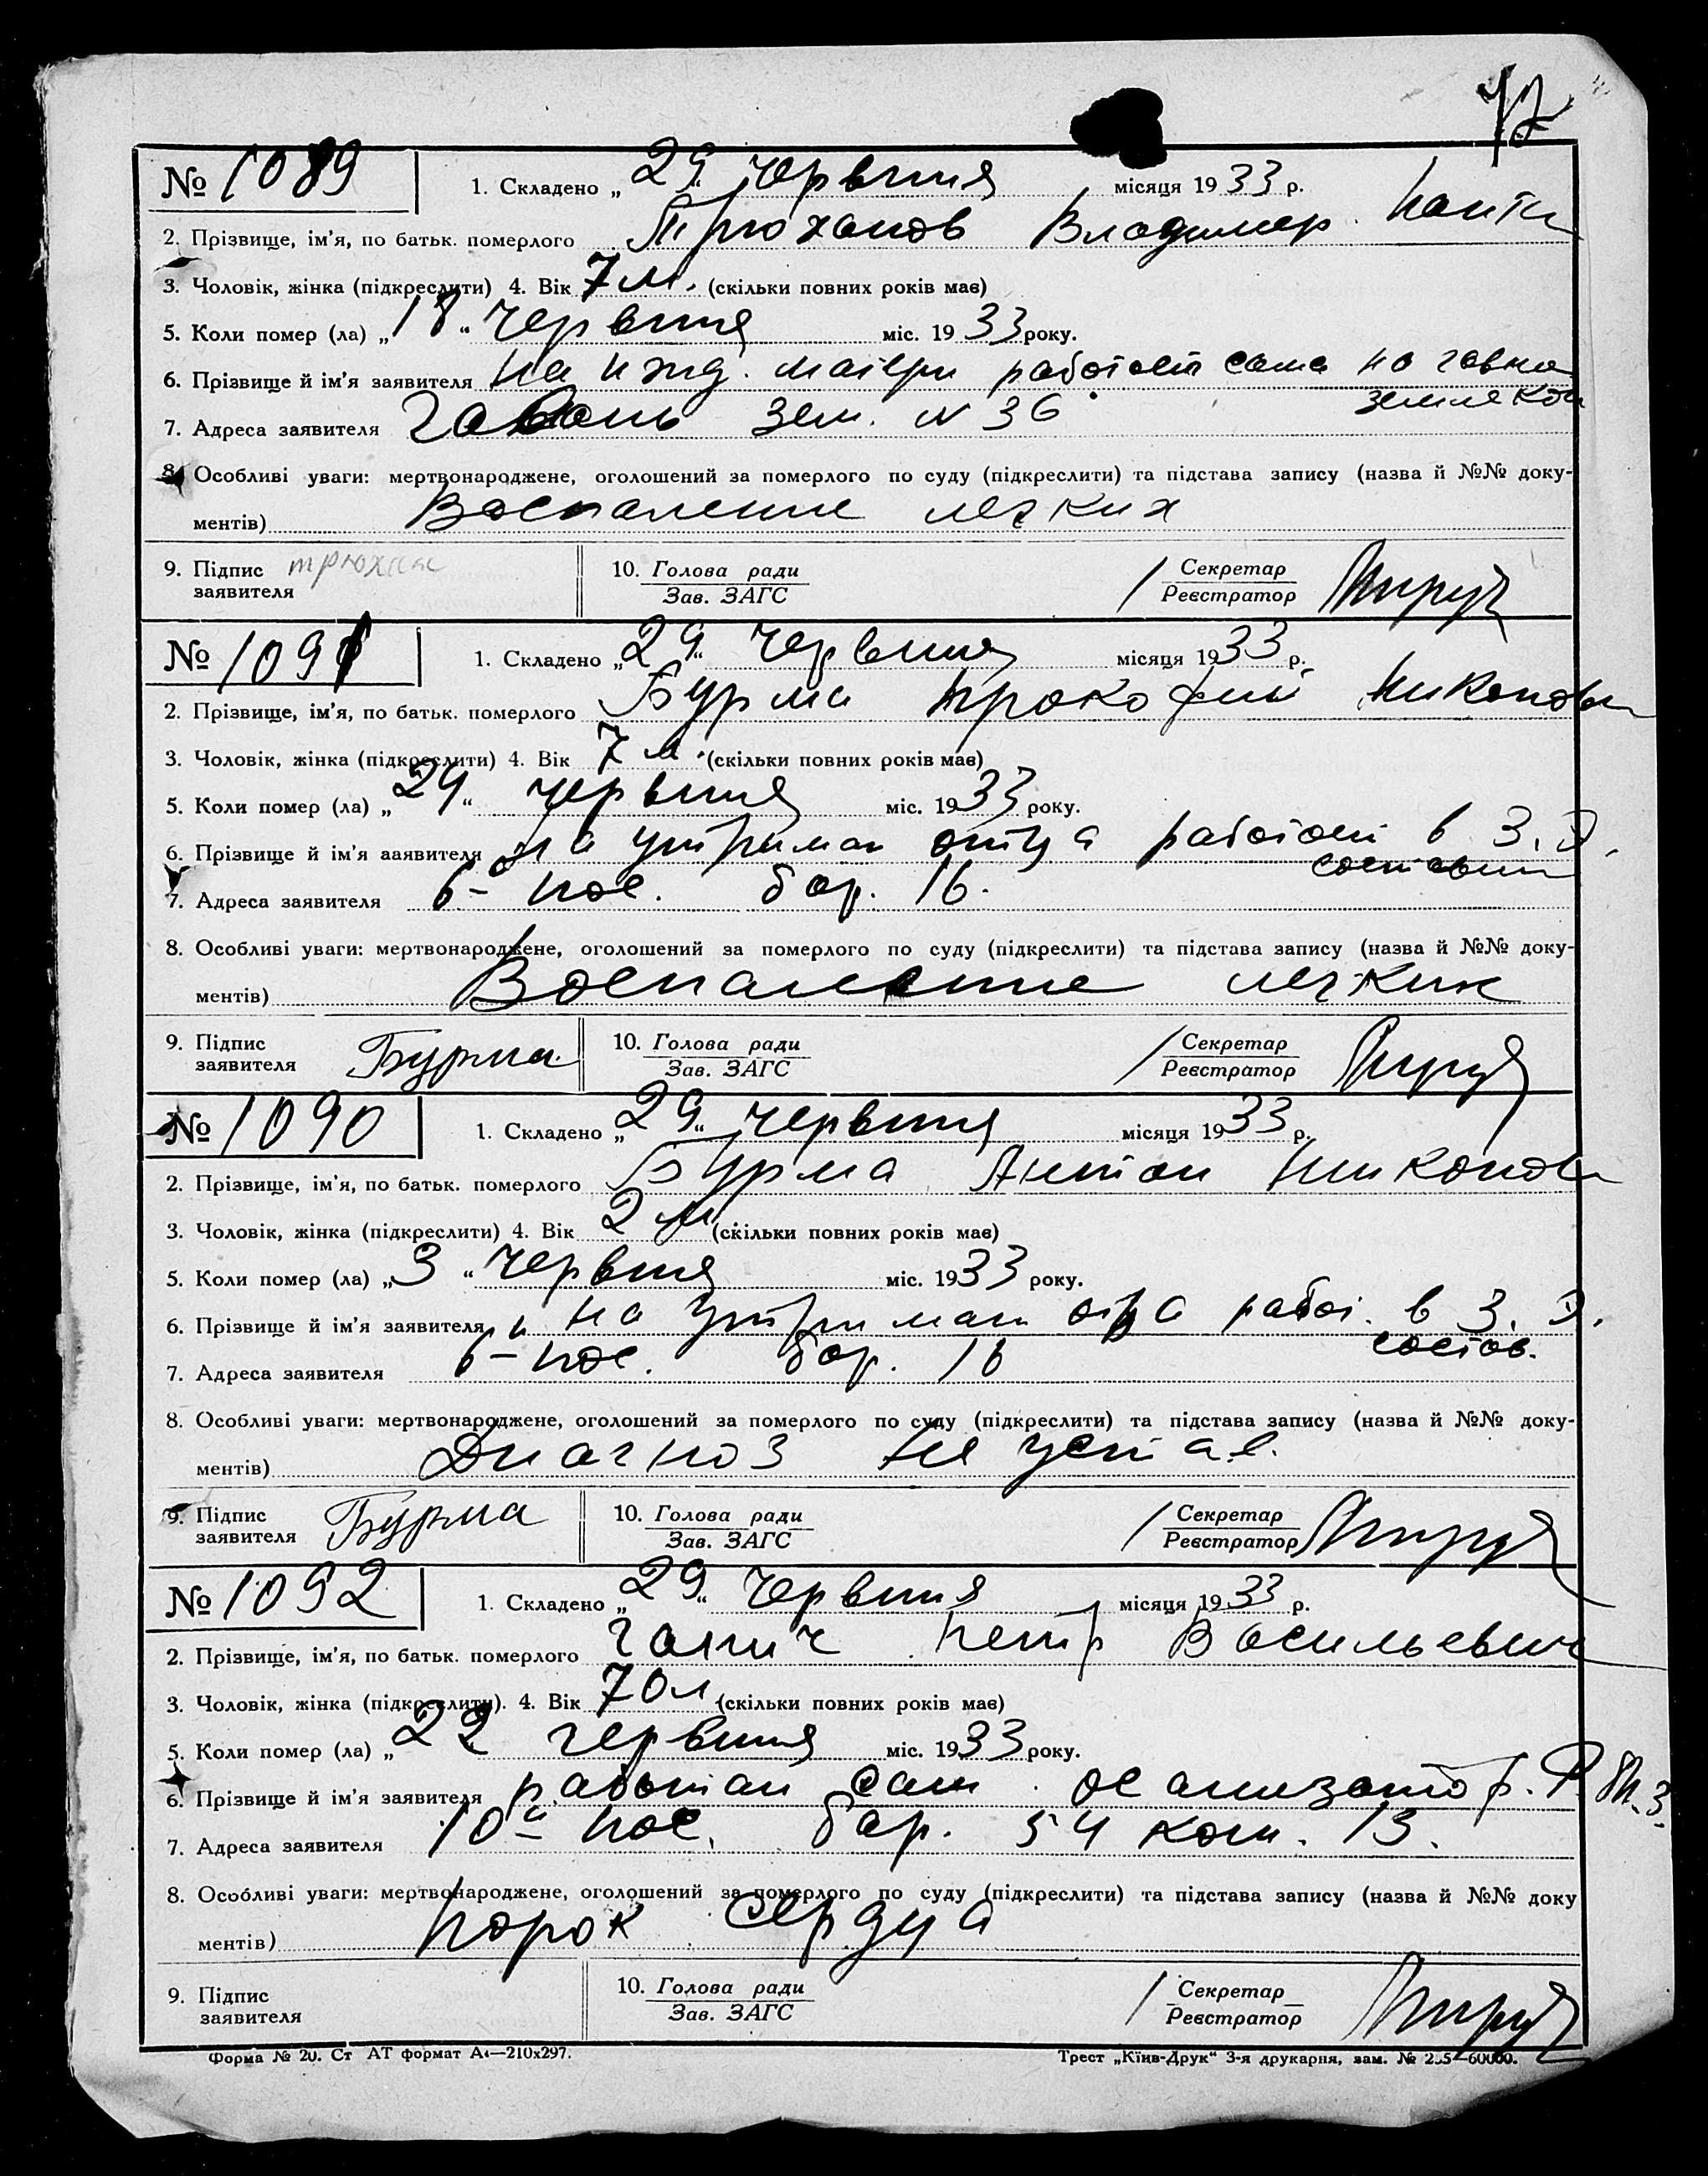 № 1089 1. Складено „29“ червния місяця 1933 р.
2. Прізвище, ім'я, по батьк. померлого Трюханов Владимер
3. Чоловік, жінка (підкреслити) 4. Вік 7 м. (скільки повних років має)
5. Коли помер (ла) „18“ червния міс. 1933 року.
6. Прізвище й ім'я заявителя на ижд. матери работает сама
землекоп
7. Адреса заявителя Гавань Зем. N 36
8. Особливі уваги: мертвонароджене, оголошений за померлого по суду (підкреслити) та підстава запису (назва й №№ доку-
ментів) Воспаление легких
9. Підпис заявителя трюхан 10. Голова ради Секретар
Зав. ЗАГС Реєстратор
№ 1091 1. Складено „29“ червния місяця 1933 р.
2. Прізвище, ім'я, по батьк. померлого Бурма Прокофий Никонови
3. Чоловік, жінка (підкреслити) 4. Вік 7 м. (скільки повних років має)
5. Коли помер (ла) „24“ червния міс. 1933 року.
6. Прізвище й ім'я ааявителя на утриман отца работает в З. Д.
7. Адреса заявителя 6й пос. бар. 16.
8. Особливі уваги: мертвонароджене, оголошений за померлого по суду (підкреслити) та підстава запису (назва й №№ доку-
ментів) Воспаление легких
9. Підпис заявителя Бурма 10. Голова ради Секретар
Зав. ЗАГС Реєстратор
№ 1090 1. Складено „29“ червния місяця 1933 р.
2. Прізвище, ім'я, по батьк. померлого Бурма Антон Никонови
3. Чоловік, жінка (підкреслити) 4. Вік 2 м (скільки повних років має)
5. Коли помер (ла) „3“ червния міс. 1933 року.
6. Прізвище й ім'я заявителя на утриман отца работ. в З. Д.
состав.
7. Адреса заявителя 6й пос. бар. 16
8. Особливі уваги: мертвонароджене, оголошений за померлого по суду (підкреслити) та підстава запису (назва й №№ доку-
ментів) Диагноз не устав.
9. Підпис заявителя Бурма 10. Голова ради Секретар
Зав. ЗАГС Реєстратор
№ 1092 1. Складено „29“ червния місяця 1933 р.
2. Прізвище, ім'я, по батьк. померлого Галич Петр Васильевич
3. Чоловік, жінка (підкреслити). 4. Вік 70 л (скільки повних років має)
5. Коли помер (ла) „22 червния міс. 1933 року.
6. Прізвище й ім'я заявителя работал сам
7. Адреса заявителя 10й пос. бар. 54 ком. 13.
8. Особливі уваги: мертвонароджене, оголошений за померлого по суду (підкреслити) та підстава запису (назва й №№ доку
ментів) Порок сердца
9. Підпис заявителя 10. Голова ради Секретар
Зав. ЗАГС Реєстратор
Форма № 20. Ст АТ формат А4—210х297. Трест „Київ-Друк“ 3-я друкарня, зам. №